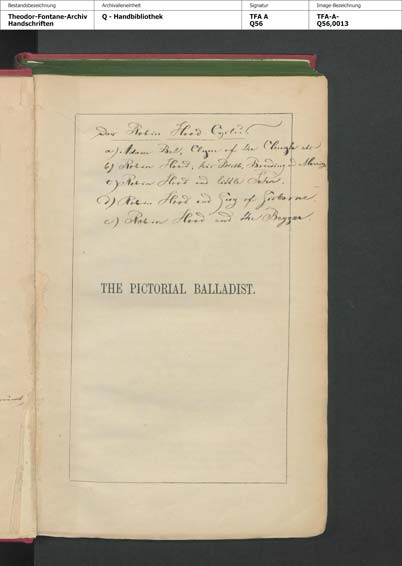 Bestandsbezeichnung
Archivalieneinheit
Signatur
Image-Bezeichnung
Theodor-Fontane-Archiv
Handschriften
Q - Handbibliothek
TFA A
Q56
TFA-A-
Q56,0013
Der Robin Hood Cyclus
a) Adam Bell, Clym of the Clough etc
b) Robin Hood, his Birth, Breeding and Marriage
c) Robin Hood and little John.
d) Robin Hood and Guy of Gisborne.
e) Robin Hood and the Beggar.
THE PICTORIAL BALLADIST.